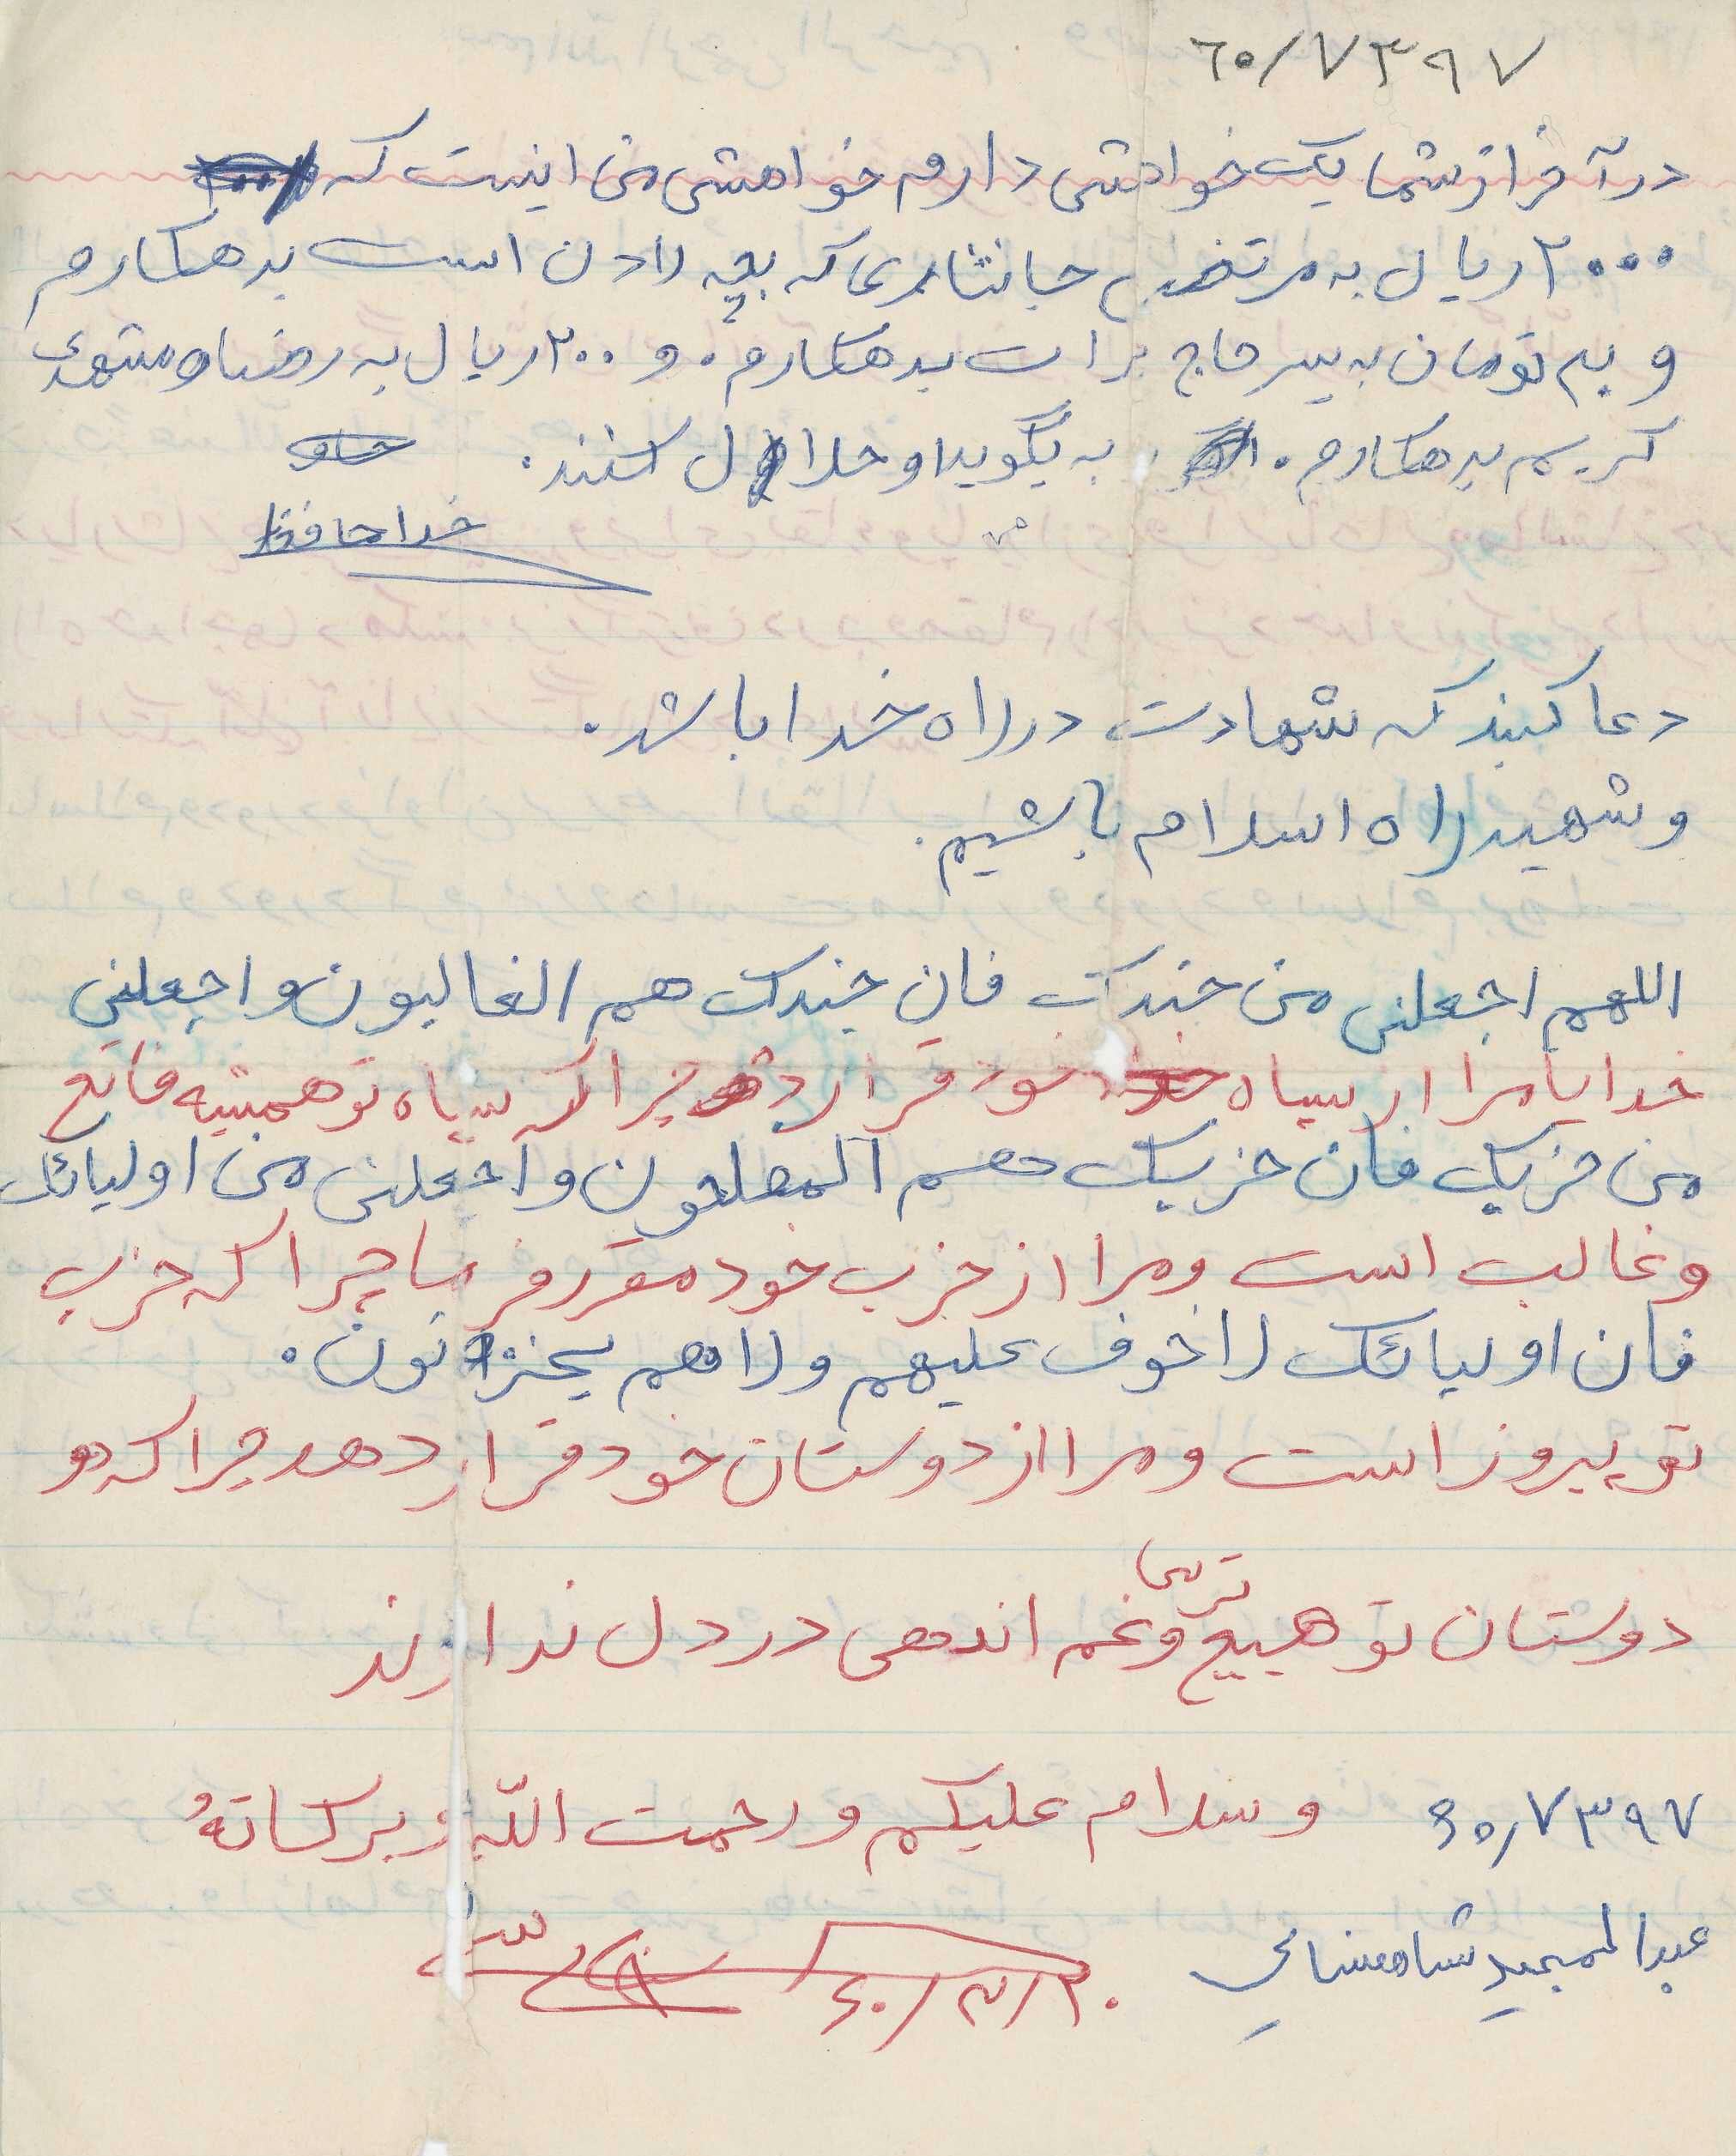 ٦٠/٧٣٩٧
در آخر از شما یک خواهشی دارم خواهشی من اینست که
۲۰۰۰ ریال به مرتضی جانثاری که بچه لادن است بدهکارم
و بم تومان به پسر حاج برات بدهکارم. و ۲۰۰ ریال به رضا مشهدی
کریم بدهکارم. به بگوید او حلال کنند.
خداحافظ
دعا کنید که شهادت در راه خدا باشد.
و شهید راه اسلام باشیم.
اللهم اجعلنی من جندک فان جندک هم الغالبون واجعلنی
خدایا مرا از سپاه خود قرار ده چرا که سپاه تو همیشه فاتح
من حزبک فان حزبک هم المفلحون واجعلنی من اولیائک
و غالب است و مرا از حزب خود مقرر فرما چرا که حزب
فان اولیائک لاخوف علیهم ولاهم یحزنون.
تو پیروز است و مرا از دوستان خود قرار دهد چرا که
دوستان تو هیچ ترسی و غم اندهی در دل ندارند
۶۰/۷۳۹۷ وسلام علیکم و رحمت اللّه و برکاتهُ
عبدالمجید شاهسنائی ۶۰/۳/۲۰